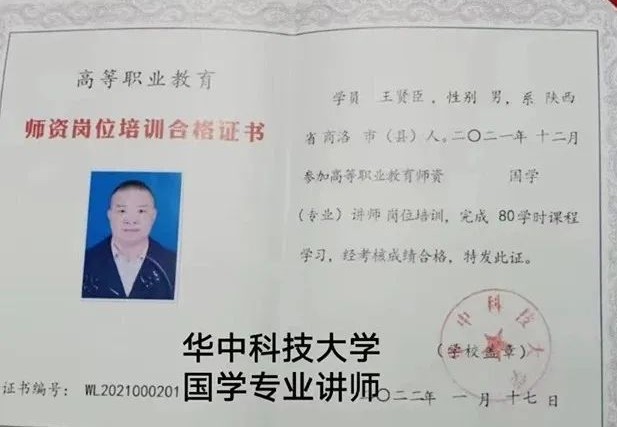 高等职业教育
师资岗位培训合格证书
证书编号： WL2021000201
学员 王贤臣，性别 男，系 陕西
省 商洛 市（县）人。二〇二一年 十二月
参加高等职业教育师资 国学
（专业）讲师 岗位培训，完成 80学时课程
学习，经考核成绩合格，特发此证。
中科技大
（学校盖章）
二〇二二年 一 月 十七 日
华中科技大学
国学专业讲师